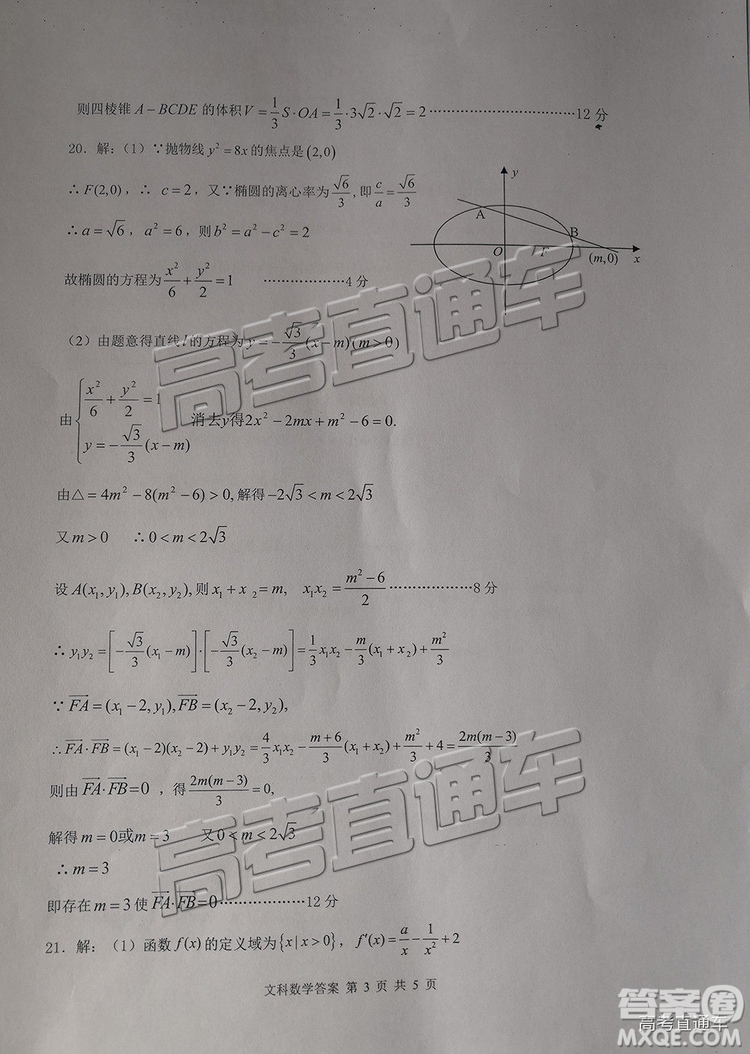 则四棱锥 A－BCDE 的体积V = 1/3 S·OA = 1/3·3√2·√2 = 2 ……………………12 分
20．解：（1）∵抛物线 y² = 8x 的焦点是 (2,0)
∴ F(2,0)，∴ c = 2，又∵椭圆的离心率为 √6/3，即 c/a = √6/3
∴ a = √6，a² = 6，则 b² = a² − c² = 2
故椭圆的方程为 x²/6 + y²/2 = 1 ……………4 分
y
A
B
O
F
(m,0)
x
（2）由题意得直线 l 的方程为 y = −√3/3 (x − m)(m > 0)
由 { x²/6 + y²/2 = 1
y = −√3/3 (x − m)
消去y得2x² − 2mx + m² − 6 = 0.
由△ = 4m² − 8(m² − 6) > 0, 解得 −2√3 < m < 2√3
又 m > 0 ∴ 0 < m < 2√3
设 A(x₁, y₁), B(x₂, y₂), 则 x₁ + x ₂ = m, x₁x₂ = (m² − 6)/2 ……………8 分
∴ y₁y₂ = [−√3/3 (x₁ − m)]·[−√3/3 (x₂ − m)] = 1/3 x₁x₂ − m/3 (x₁ + x₂) + m²/3
∵ FA = (x₁ − 2, y₁), FB = (x₂ − 2, y₂),
∴ FA·FB = (x₁ − 2)(x₂ − 2) + y₁y₂ = 4/3 x₁x₂ − (m + 6)/3 (x₁ + x₂) + m²/3 + 4 = 2m(m − 3)/3
则由 FA·FB=0 ，得 2m(m − 3)/3 = 0,
解得 m = 0或m = 3 又 0 < m < 2√3
∴ m = 3
即存在 m = 3 使 FA·FB = 0 ………………12 分
21．解：（1）函数 f(x) 的定义域为 {x | x > 0}，f′(x) = a/x − 1/x² + 2
文科数学答案 第 3 页 共 5 页
高考直通车
高考直通车
高考直通车
答案圈
MXQE.COM
高考直通车